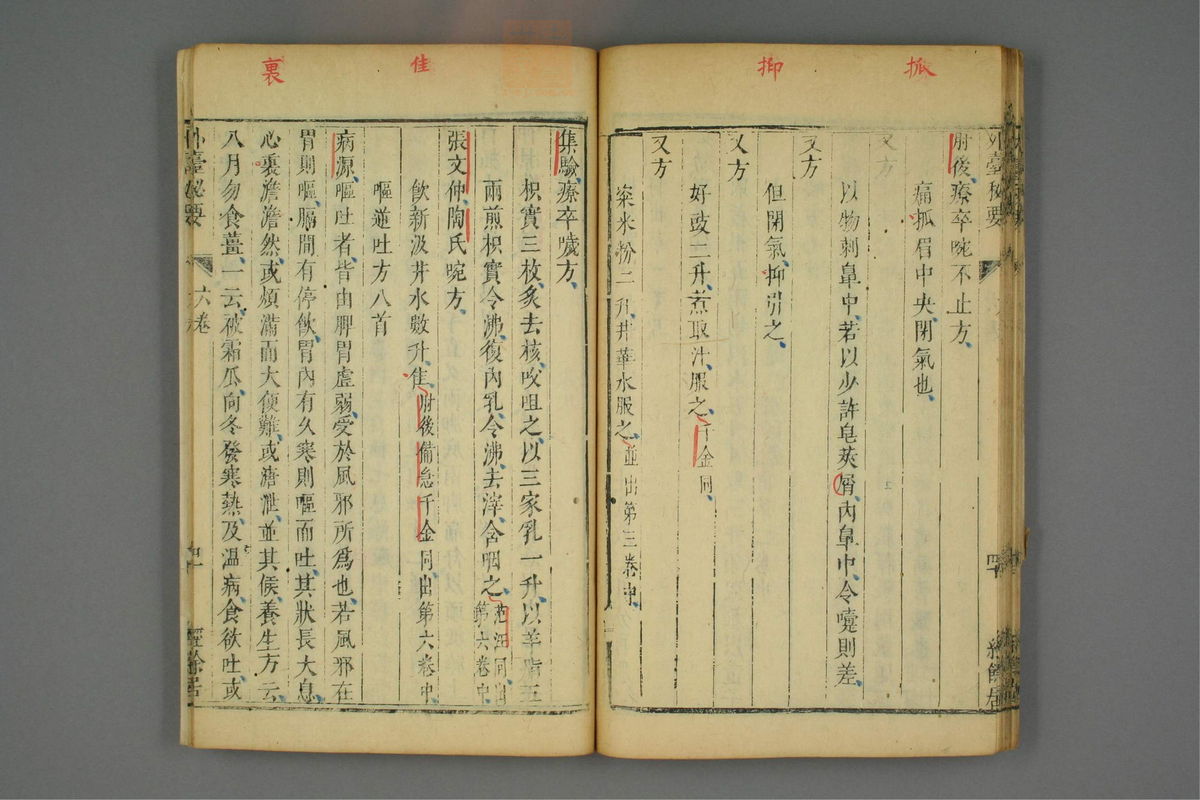 抓
抑
隹
裏
外臺秘要
肘後療卒啘不止方
痛抓眉中央閉氣也
又方
以物刺鼻中若以少許皂莢屑內鼻中令嚏則差
又方
但閉氣抑引之
又方
好豉二升煮取汁服之千金同
又方
粢米粉二升井華水服之並出第三卷中
集驗療卒噦方
枳實三枚炙去核㕮咀之以三家乳一升以羊脂五
兩煎枳實令沸復內乳令沸去滓含咽之范汪同出第六卷中
張文仲陶氏啘方
飲新汲井水數升隹肘後備急千金同出第六卷中
嘔逆吐方八首
病源嘔吐者皆由脾胃虛弱受於風邪所爲也若風邪在
胃則嘔膈間有停飲胃內有久寒則嘔而吐其狀長大息
心裏澹澹然或煩滿而大便難或溏泄並其候養生方云
八月勿食薑一云被霜瓜向冬發寒熱及溫病食欲吐或
外臺秘要
六卷
經餘居